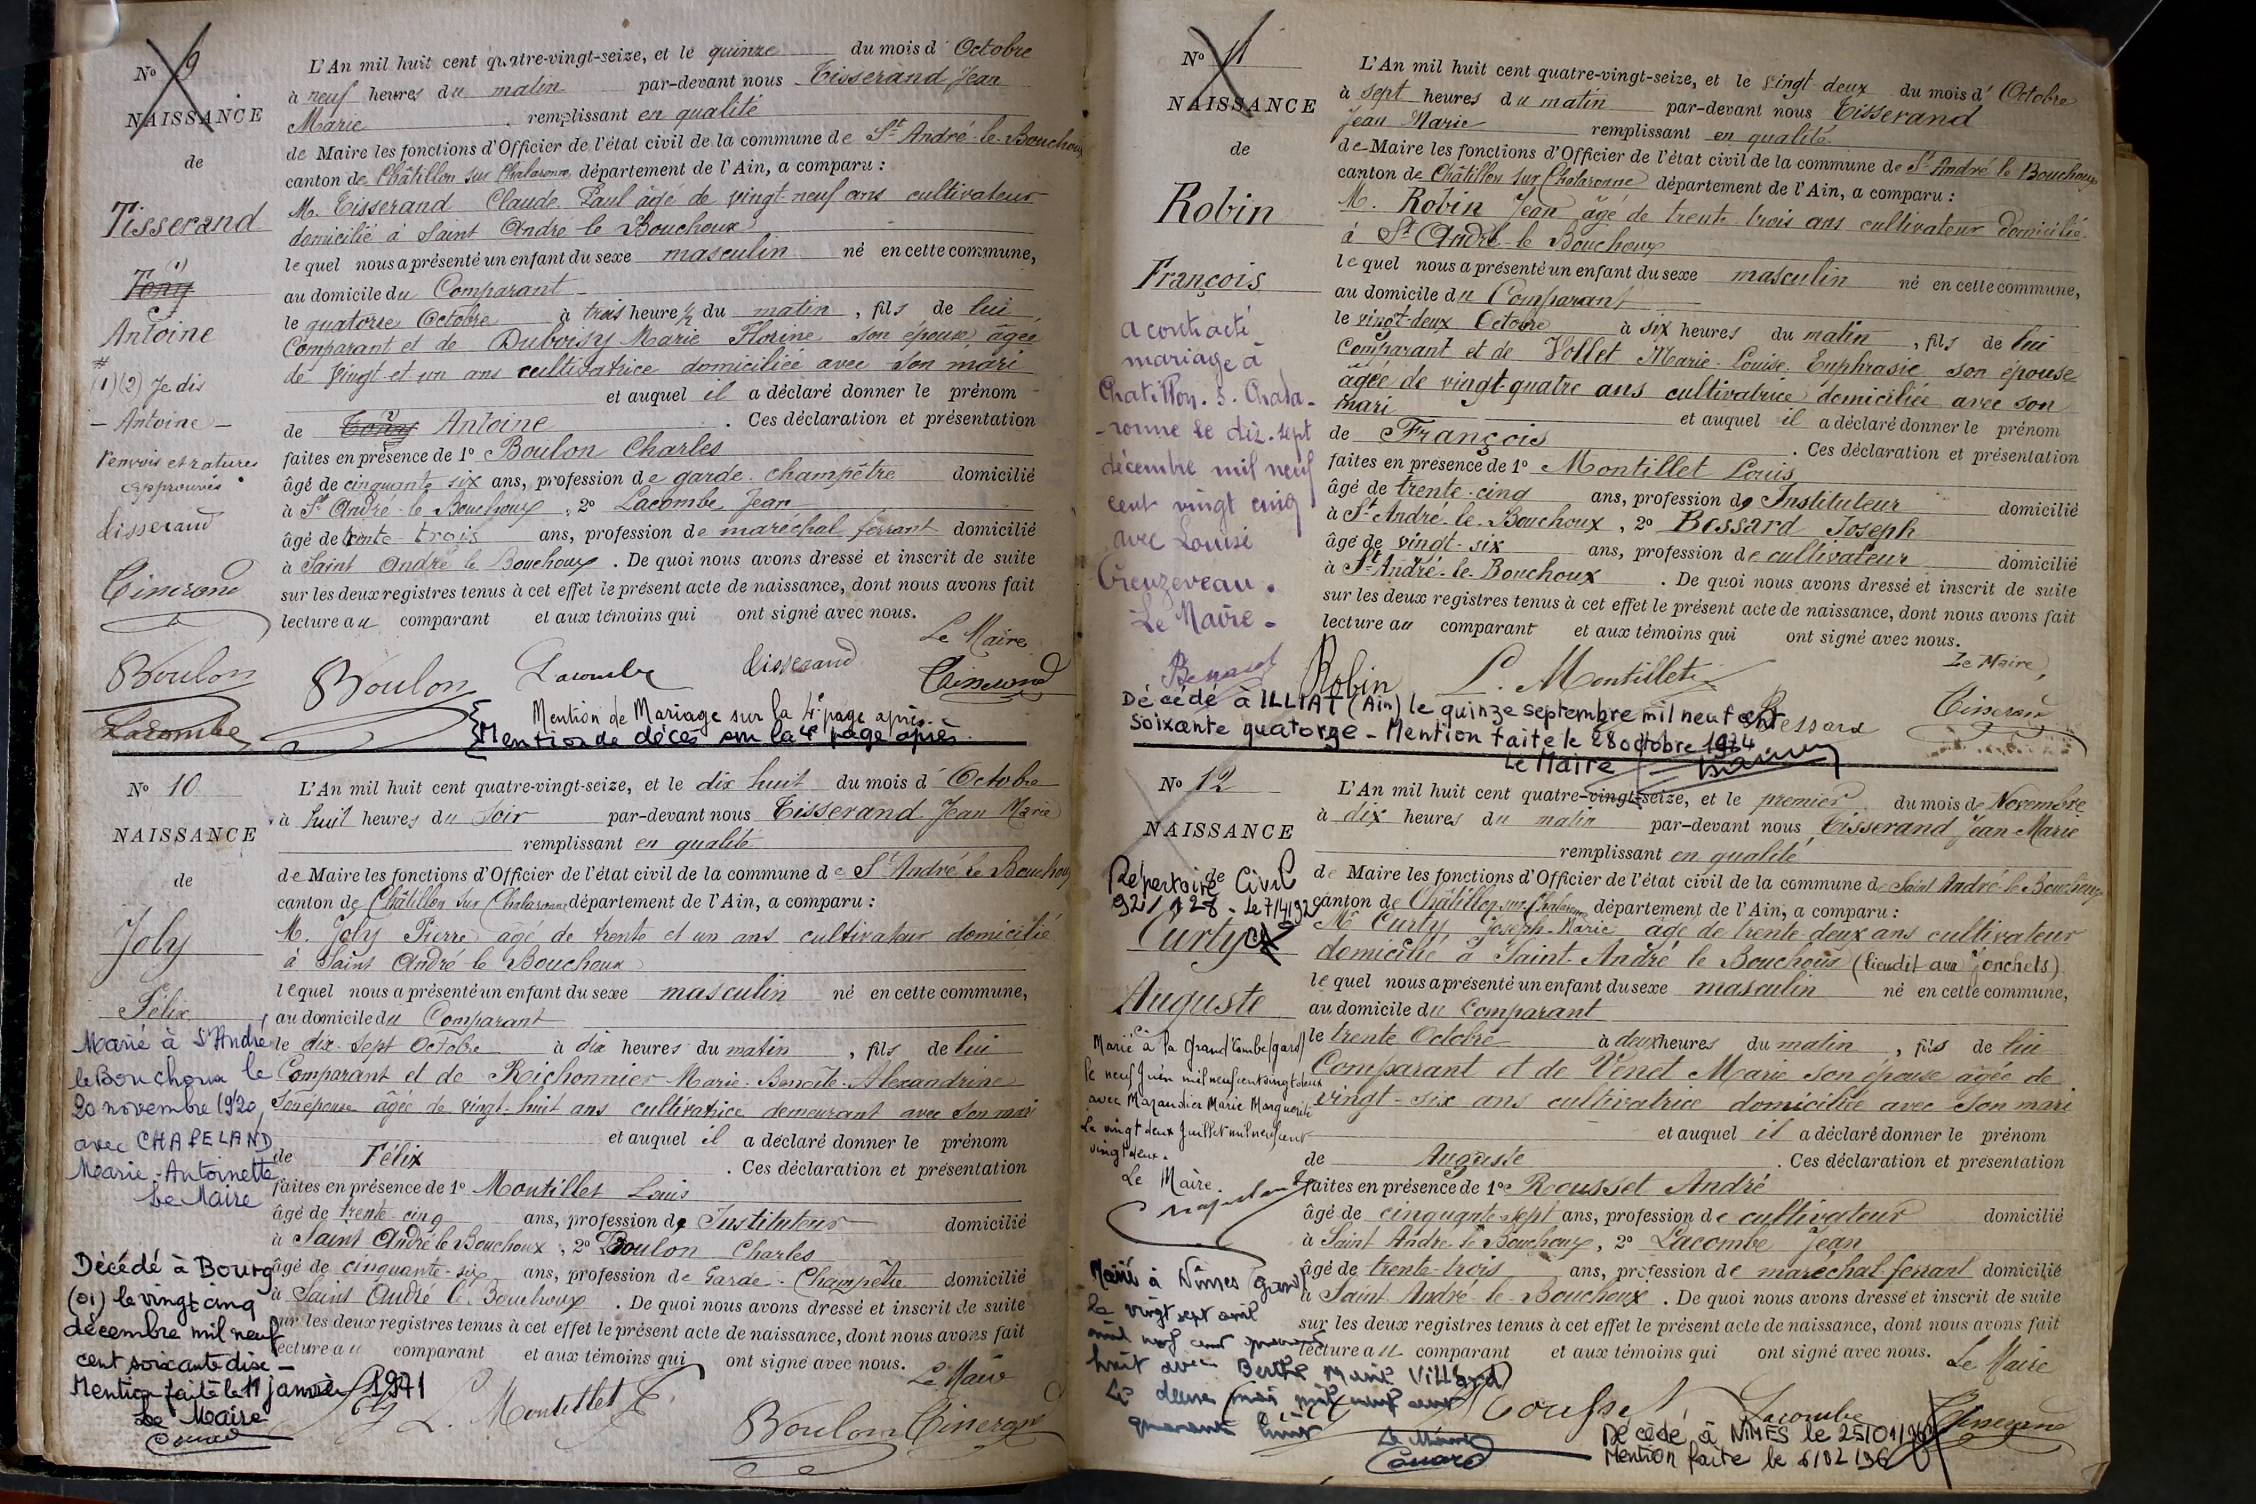 No 9
NAISSANCE
de
Tisserand
(1)
Tony
Antoine
(1)(2) Je dis
- Antoine -
renvois et ratures
approuvés
Tisserand
Tisserand
Boulon
Lacombe
L'An mil huit cent quatre-vingt-seize, et le quinze du mois d' Octobre
à neuf heures du matin par-devant nous Tisserand Jean
Marie remplissant en qualité
de Maire les fonctions d'Officier de l'état civil de la commune de St André-le-Bouchoux
canton de Châtillon sur Chalaronne, département de l'Ain, a comparu :
M. Tisserand Claude Paul âgé de vingt-neuf ans cultivateur
domicilié à Saint André le Bouchoux
lequel nous a présenté un enfant du sexe masculin né en cette commune,
au domicile du Comparant
le quatorze Octobre à trois heure ½ du matin, fils de lui
Comparant et de Duboisy Marie Florine son épouse, âgée
de vingt et un ans cultivatrice domiciliée avec son mari
et auquel il a déclaré donner le prénom
de Tony Antoine. Ces déclaration et présentation
faites en présence de 1o Boulon Charles
âgé de cinquante six ans, profession de garde champêtre domicilié
à St André-le Bouchoux, 2o Lacombe Jean
âgé de trente-trois ans, profession de maréchal ferrant domicilié
à Saint André le Bouchoux. De quoi nous avons dressé et inscrit de suite
sur les deux registres tenus à cet effet le présent acte de naissance, dont nous avons fait
lecture au comparant et aux témoins qui ont signé avec nous.
Le Maire
Boulon Lacombe Tisserand Tisserand
Mention de Mariage sur la 4e page après.
Mention de décès sur la 4e page après
No 10
NAISSANCE
de
Joly
Félix
Marié à St André
le Bouchoux le
20 novembre 1920,
avec CHAPELAND
Marie-Antoinette
Le Maire
Décédé à Bourg
(01) le vingt cinq
décembre mil neuf
cent soixante dix -
Mention faite le 11 janvier 1971
Le Maire
L'An mil huit cent quatre-vingt-seize, et le dix huit du mois d' Octobre
à huit heures du soir par-devant nous Tisserand Jean Marie
remplissant en qualité
de Maire les fonctions d'Officier de l'état civil de la commune de St André le Bouchoux
canton de Châtillon sur Chalaronne département de l'Ain, a comparu :
M. Joly Pierre âgé de trente et un ans cultivateur domicilié
à Saint André le Bouchoux
lequel nous a présenté un enfant du sexe masculin né en cette commune,
au domicile du Comparant
le dix-sept Octobre à dix heures du matin, fils de lui
Comparant et de Richonnier Marie-Benoîte-Alexandrine
son épouse âgée de vingt-huit ans cultivatrice demeurant avec son mari
et auquel il a déclaré donner le prénom
de Félix. Ces déclaration et présentation
faites en présence de 1o Montillet Louis
âgé de trente-cinq ans, profession de Instituteur domicilié
à Saint André le Bouchoux, 2o Boulon Charles
âgé de cinquante-six ans, profession de Garde-Champêtre domicilié
à Saint André le Bouchoux. De quoi nous avons dressé et inscrit de suite
sur les deux registres tenus à cet effet le présent acte de naissance, dont nous avons fait
lecture au comparant et aux témoins qui ont signé avec nous.
Le Maire
L. Montillet Boulon Tisserand
No 11
NAISSANCE
de
Robin
François
a contracté
mariage à
Chatillon-s-Chala-
-ronne le dix-sept
décembre mil neuf
cent vingt cinq
avec Louise
Creuzeveau.
Le Maire -
L'An mil huit cent quatre-vingt-seize, et le vingt-deux du mois d' Octobre
à sept heures du matin par-devant nous Tisserand
Jean Marie remplissant en qualité
de Maire les fonctions d'Officier de l'état civil de la commune de St André le Bouchoux
canton de Châtillon sur Chalaronne département de l'Ain, a comparu :
M. Robin Jean âgé de trente trois ans cultivateur domicilié
à St André-le Bouchoux
lequel nous a présenté un enfant du sexe masculin né en cette commune,
au domicile du Comparant
le vingt-deux Octobre à six heures du matin, fils de lui
Comparant et de Vollet Marie-Louise Euphrasie son épouse
âgée de vingt-quatre ans cultivatrice domiciliée avec son
mari et auquel il a déclaré donner le prénom
de François. Ces déclaration et présentation
faites en présence de 1o Montillet Louis
âgé de trente-cinq ans, profession de Instituteur domicilié
à St André-le-Bouchoux, 2o Bessard Joseph
âgé de vingt-six ans, profession de cultivateur domicilié
à St André-le-Bouchoux. De quoi nous avons dressé et inscrit de suite
sur les deux registres tenus à cet effet le présent acte de naissance, dont nous avons fait
lecture au comparant et aux témoins qui ont signé avec nous.
Le Maire,
Robin L. Montillet Bessard Tisserand
Décédé à ILLIAT (Ain) le quinze septembre mil neuf cent
soixante quatorze - Mention faite le 28 octobre 1974
Le Maire
No 12
NAISSANCE
de
Répertoire Civil
92/128 - Le 7/4/92
Curty
Auguste
Marié à la Grand'Combe (gard)
le neuf Juin mil neuf cent vingt deux
avec Mazaudier Marie Marguerite
Le vingt deux Juillet mil neuf cent
vingt deux.
Le Maire.
Marié à Nîmes Gard
le vingt sept avril
mil neuf cent quarante
huit avec Berthe Marie Villard
Le deux mai mil neuf cent
quarante huit
Le Maire
L'An mil huit cent quatre-vingt-seize, et le premier du mois de Novembre
à dix heures du matin par-devant nous Tisserand Jean-Marie
remplissant en qualité
de Maire les fonctions d'Officier de l'état civil de la commune de Saint André-le-Bouchoux
canton de Châtillon sur Chalaronne département de l'Ain, a comparu :
Mr Curty Joseph-Marie âgé de trente-deux ans cultivateur
domicilié à Saint-André le Bouchoux (lieudit aux Jonchets)
lequel nous a présenté un enfant du sexe masculin né en cette commune,
au domicile du Comparant
le trente Octobre à deux heures du matin, fils de lui
Comparant et de Venet Marie son épouse âgée de
vingt-six ans cultivatrice domiciliée avec son mari
et auquel il a déclaré donner le prénom
de Auguste. Ces déclaration et présentation
faites en présence de 1o Rousset André
âgé de cinquante-sept ans, profession de cultivateur domicilié
à Saint André-le-Bouchoux, 2o Lacombe Jean
âgé de trente-trois ans, profession de maréchal ferrant domicilié
à Saint André-le-Bouchoux. De quoi nous avons dressé et inscrit de suite
sur les deux registres tenus à cet effet le présent acte de naissance, dont nous avons fait
lecture au comparant et aux témoins qui ont signé avec nous.
Le Maire
Lacombe Tisserand
Décédé à NIMES le 25/01/96
Mention faite le 6/02/96